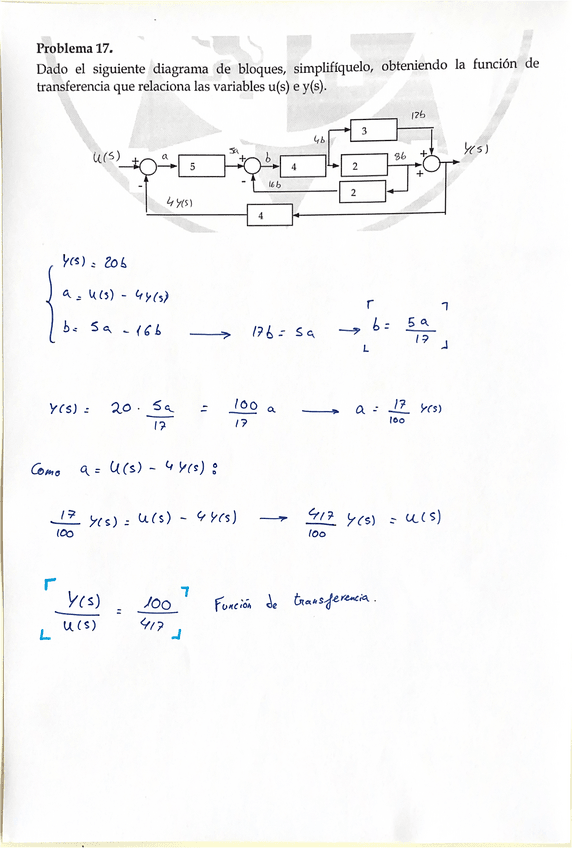 Problema 17.
Dado el siguiente diagrama de bloques, simplifíquelo, obteniendo la función de
transferencia que relaciona las variables u(s) e y(s).
12b
4b 3
U(s) + a 5 5a + b 4 2 8b + + Y(s)
- - 16b 2
4Y(s) 4
Y(s) = 20b
a = U(s) - 4Y(s)
b = 5a - 16b → 17b = 5a → b = 5a/17
Y(s) = 20 · 5a/17 = 100/17 a → a = 17/100 Y(s)
Como a = U(s) - 4Y(s) :
17/100 Y(s) = U(s) - 4Y(s) → 417/100 Y(s) = U(s)
Y(s)/U(s) = 100/417 Función de transferencia.